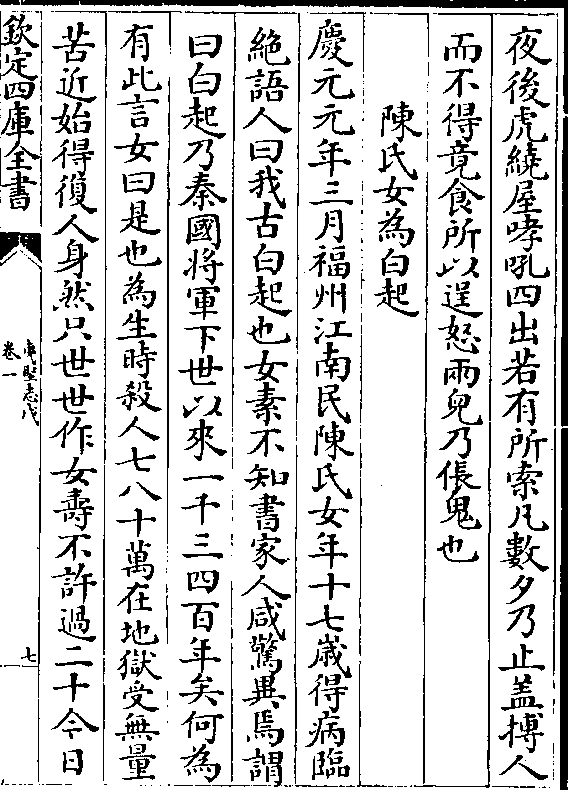 夜後虎繞屋哮吼四出若有所索凡數夕乃止盖搏人
而不得竟食所以逞怒兩鬼乃倀鬼也
陳氏女為白起
慶元元年三月福州江南民陳氏女年十七歲得病臨
絶語人曰我古白起也女素不知書家人咸驚異焉謂
曰白起乃秦國將軍下世以來一千三四百年矣何為
有此言女曰是也為生時殺人七八十萬在地獄受無量
苦近始得復人身然只世世作女壽不許過二十今日
欽定四庫全書
夷堅志戊
卷一
七